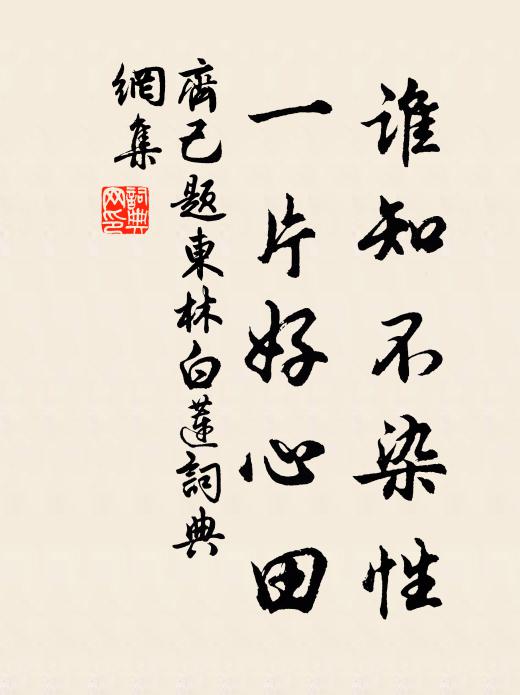 谁知不染性
一片好心田
齊己題東林白蓮詞典
網集
詞典
网印